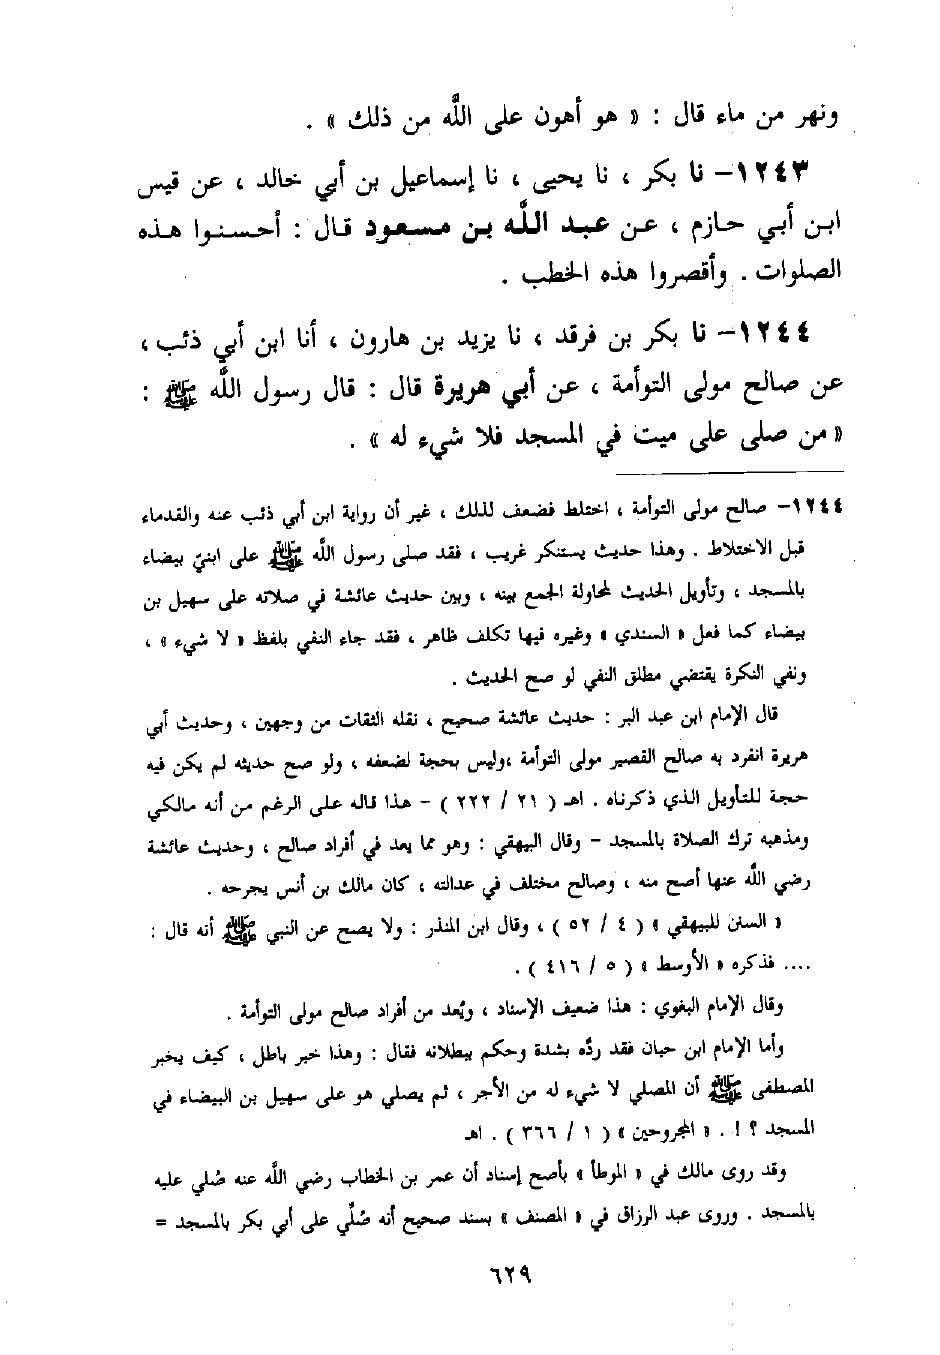 ونهر من ماء قال : « هو أهون على اللَّه من ذلك » .
١٢٤٣– نا بكر ، نا يحيى ، نا إسماعيل بن أبي خالد ، عن قيس
ابن أبي حازم ، عن عبد اللَّه بن مسعود قال : أحسنوا هذه
الصلوات . وأقصروا هذه الخطب .
١٢٤٤– نا بكر بن فرقد ، نا يزيد بن هارون ، أنا ابن أبي ذئب ،
عن صالح مولى التوأمة ، عن أبي هريرة قال : قال رسول اللَّه ﷺ :
« من صلى على ميت في المسجد فلا شيء له » .
١٢٤٤– صالح مولى التوأمة ، اختلط فضعف لذلك ، غير أن رواية ابن أبي ذئب عنه والقدماء
قبل الاختلاط . وهذا حديث يستنكر غريب ، فقد صلى رسول اللَّه ﷺ على ابنيّ بيضاء
بالمسجد ، وتأويل الحديث لمحاولة الجمع بينه ، وبين حديث عائشة في صلاته على سهيل بن
بيضاء كما فعل « السندي » وغيره فيها تكلف ظاهر ، فقد جاء النفي بلفظ « لا شيء » ،
ونفي النكرة يقتضي مطلق النفي لو صح الحديث .
قال الإمام ابن عبد البر : حديث عائشة صحيح ، نقله الثقات من وجهين ، وحديث أبي
هريرة انفرد به صالح القصير مولى التوأمة ،وليس بحجة لضعفه ، ولو صح حديثه لم يكن فيه
حجة للتأويل الذي ذكرناه . اهـ ( ٢١ / ٢٢٢ ) – هذا قاله على الرغم من أنه مالكي
ومذهبه ترك الصلاة بالمسجد – وقال البيهقي : وهو مما يعد في أفراد صالح ، وحديث عائشة
رضي اللَّه عنها أصح منه ، وصالح مختلف في عدالته ، كان مالك بن أنس يجرحه .
« السنن للبيهقي » ( ٤ / ٥٢ ) ، وقال ابن المنذر : ولا يصح عن النبي ﷺ أنه قال :
.... فذكره « الأوسط » ( ٥ / ٤١٦ ) .
وقال الإمام البغوي : هذا ضعيف الإسناد ، ويُعد من أفراد صالح مولى التوأمة .
وأما الإمام ابن حبان فقد ردّه بشدة وحكم ببطلانه فقال : وهذا خبر باطل ، كيف يخبر
المصطفى ﷺ أن المصلي لا شيء له من الأجر ، ثم يصلي هو على سهيل بن البيضاء في
المسجد ؟ ! . « المجروحين » ( ١ / ٣٦٦ ) . اهـ
وقد روى مالك في « الموطأ » بأصح إسناد أن عمر بن الخطاب رضي اللَّه عنه صُلي عليه
بالمسجد . وروى عبد الرزاق في « المصنف » بسند صحيح أنه صُلِّي على أبي بكر بالمسجد =
٦٢٩